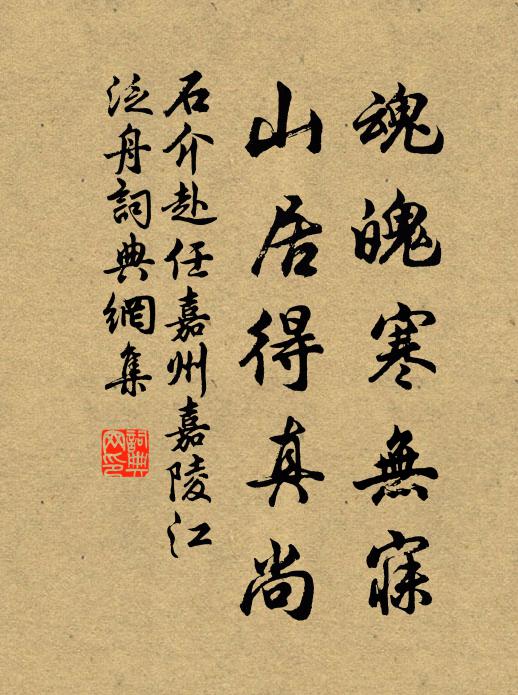 魂魄寒無寐
山居得真尚
石介赴任嘉州嘉陵江
泛舟詞典網集
詞典
网印